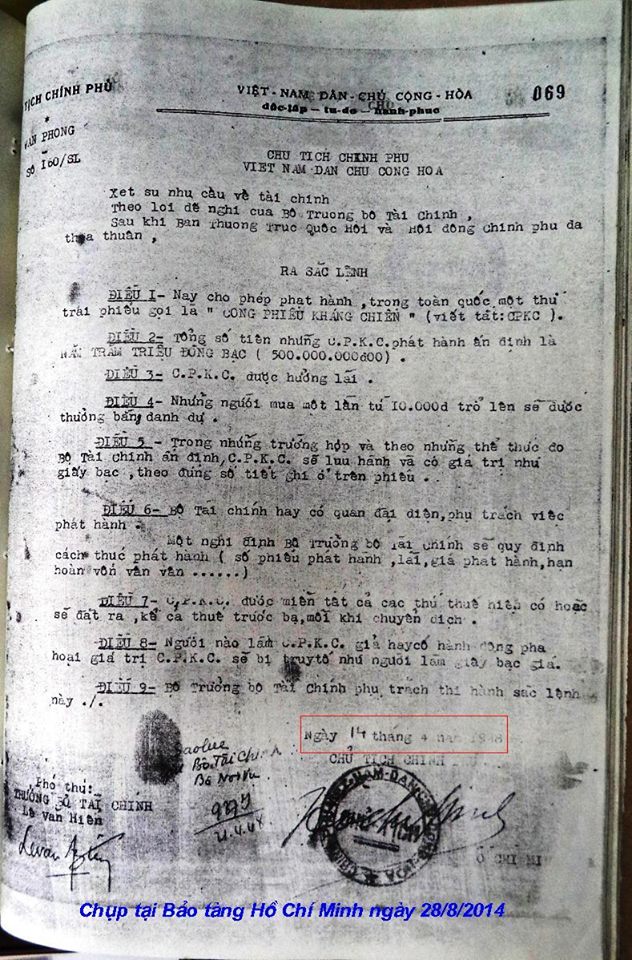 TỊCH CHÍNH PHỦ
*
VAN PHONG
SỐ I60/SL
VIỆT-NAM DÂN-CHỦ CỘNG-HÒA
độc-lập - tu-do - hành-phuc
069
CHU TỊCH CHINH PHU
VIET NAM DAN CHU CONG HOA
Xet su nhu cầu về tài chinh
Theo loi đề nghi cua Bô Truong bô Tài Chinh ,
Sau khi Ban Thuong Truc Quốc Hôi và Hôi đông Chinh phu da
thỏa thuân ,
RA SẮC LỆNH
ĐIỀU I- Nay cho phép phat hành ,trong toàn quốc một thư
trái phiếu gọi la " CONG PHIẾU KHÁNG CHIẾN " (viết tắt:CPKC ).
ĐIỀU 2- Tổng số tiên nhưng C.P.K.C.phát hành ấn định là
NĂM TRĂM TRIỆU ĐỒNG BẠC ( 500.000.000đ00) .
ĐIỀU 3- C.P.K.C. được hưởng lãi .
ĐIỀU 4- Nhưng người mua một lần tư I0.000đ trở lên sẽ được
thưởng bằng danh dự .
ĐIỀU 5 - Trong những trương hợp và theo nhưng thể thưc do
Bộ Tai chinh ấn định,C.P.K.C. sẽ luu hành và có giá tri như
giấy bac ,theo đúng số tiết ghi ở trên phiếu .
ĐIỀU 6- Bộ Tai chinh hay có quan đai diện,phụ trách viêc
phát hành .
Một nghi đinh Bộ Trưởng bộ Tài Chinh sẽ quy đinh
cách thưc phát hành ( số phiếu phát hành ,lãi,giá phat hành,hạn
hoàn vốn vân vân ......)
ĐIỀU 7- C.P.K.C. được miễn tất cả cac thứ thuế hiện có hoặc
sẽ đặt ra ,kể cả thuế trước bạ,mỗi khi chuyển dich .
ĐIỀU 8- Người nào làm C.P.K.C. giả haycó hành động pha
hoại giá tri C.P.K.C. sẽ bi truytố như người làm giấy bạc giả.
ĐIỀU 9- Bộ Trưởng bộ Tài Chinh phụ trách thi hành sắc lệnh
này ./.
Ngày 14 tháng 4 năm 1948
CHỦ TỊCH CHINH
Sao lục
Bộ Tài Chính
Bộ Nội Vụ
Phó thư:
TRƯỞNG BỘ TÀI CHÍNH
Lê Van Hiến
Ồ CHI MI
Chụp tại Bảo tàng Hồ Chí Minh ngày 28/8/2014